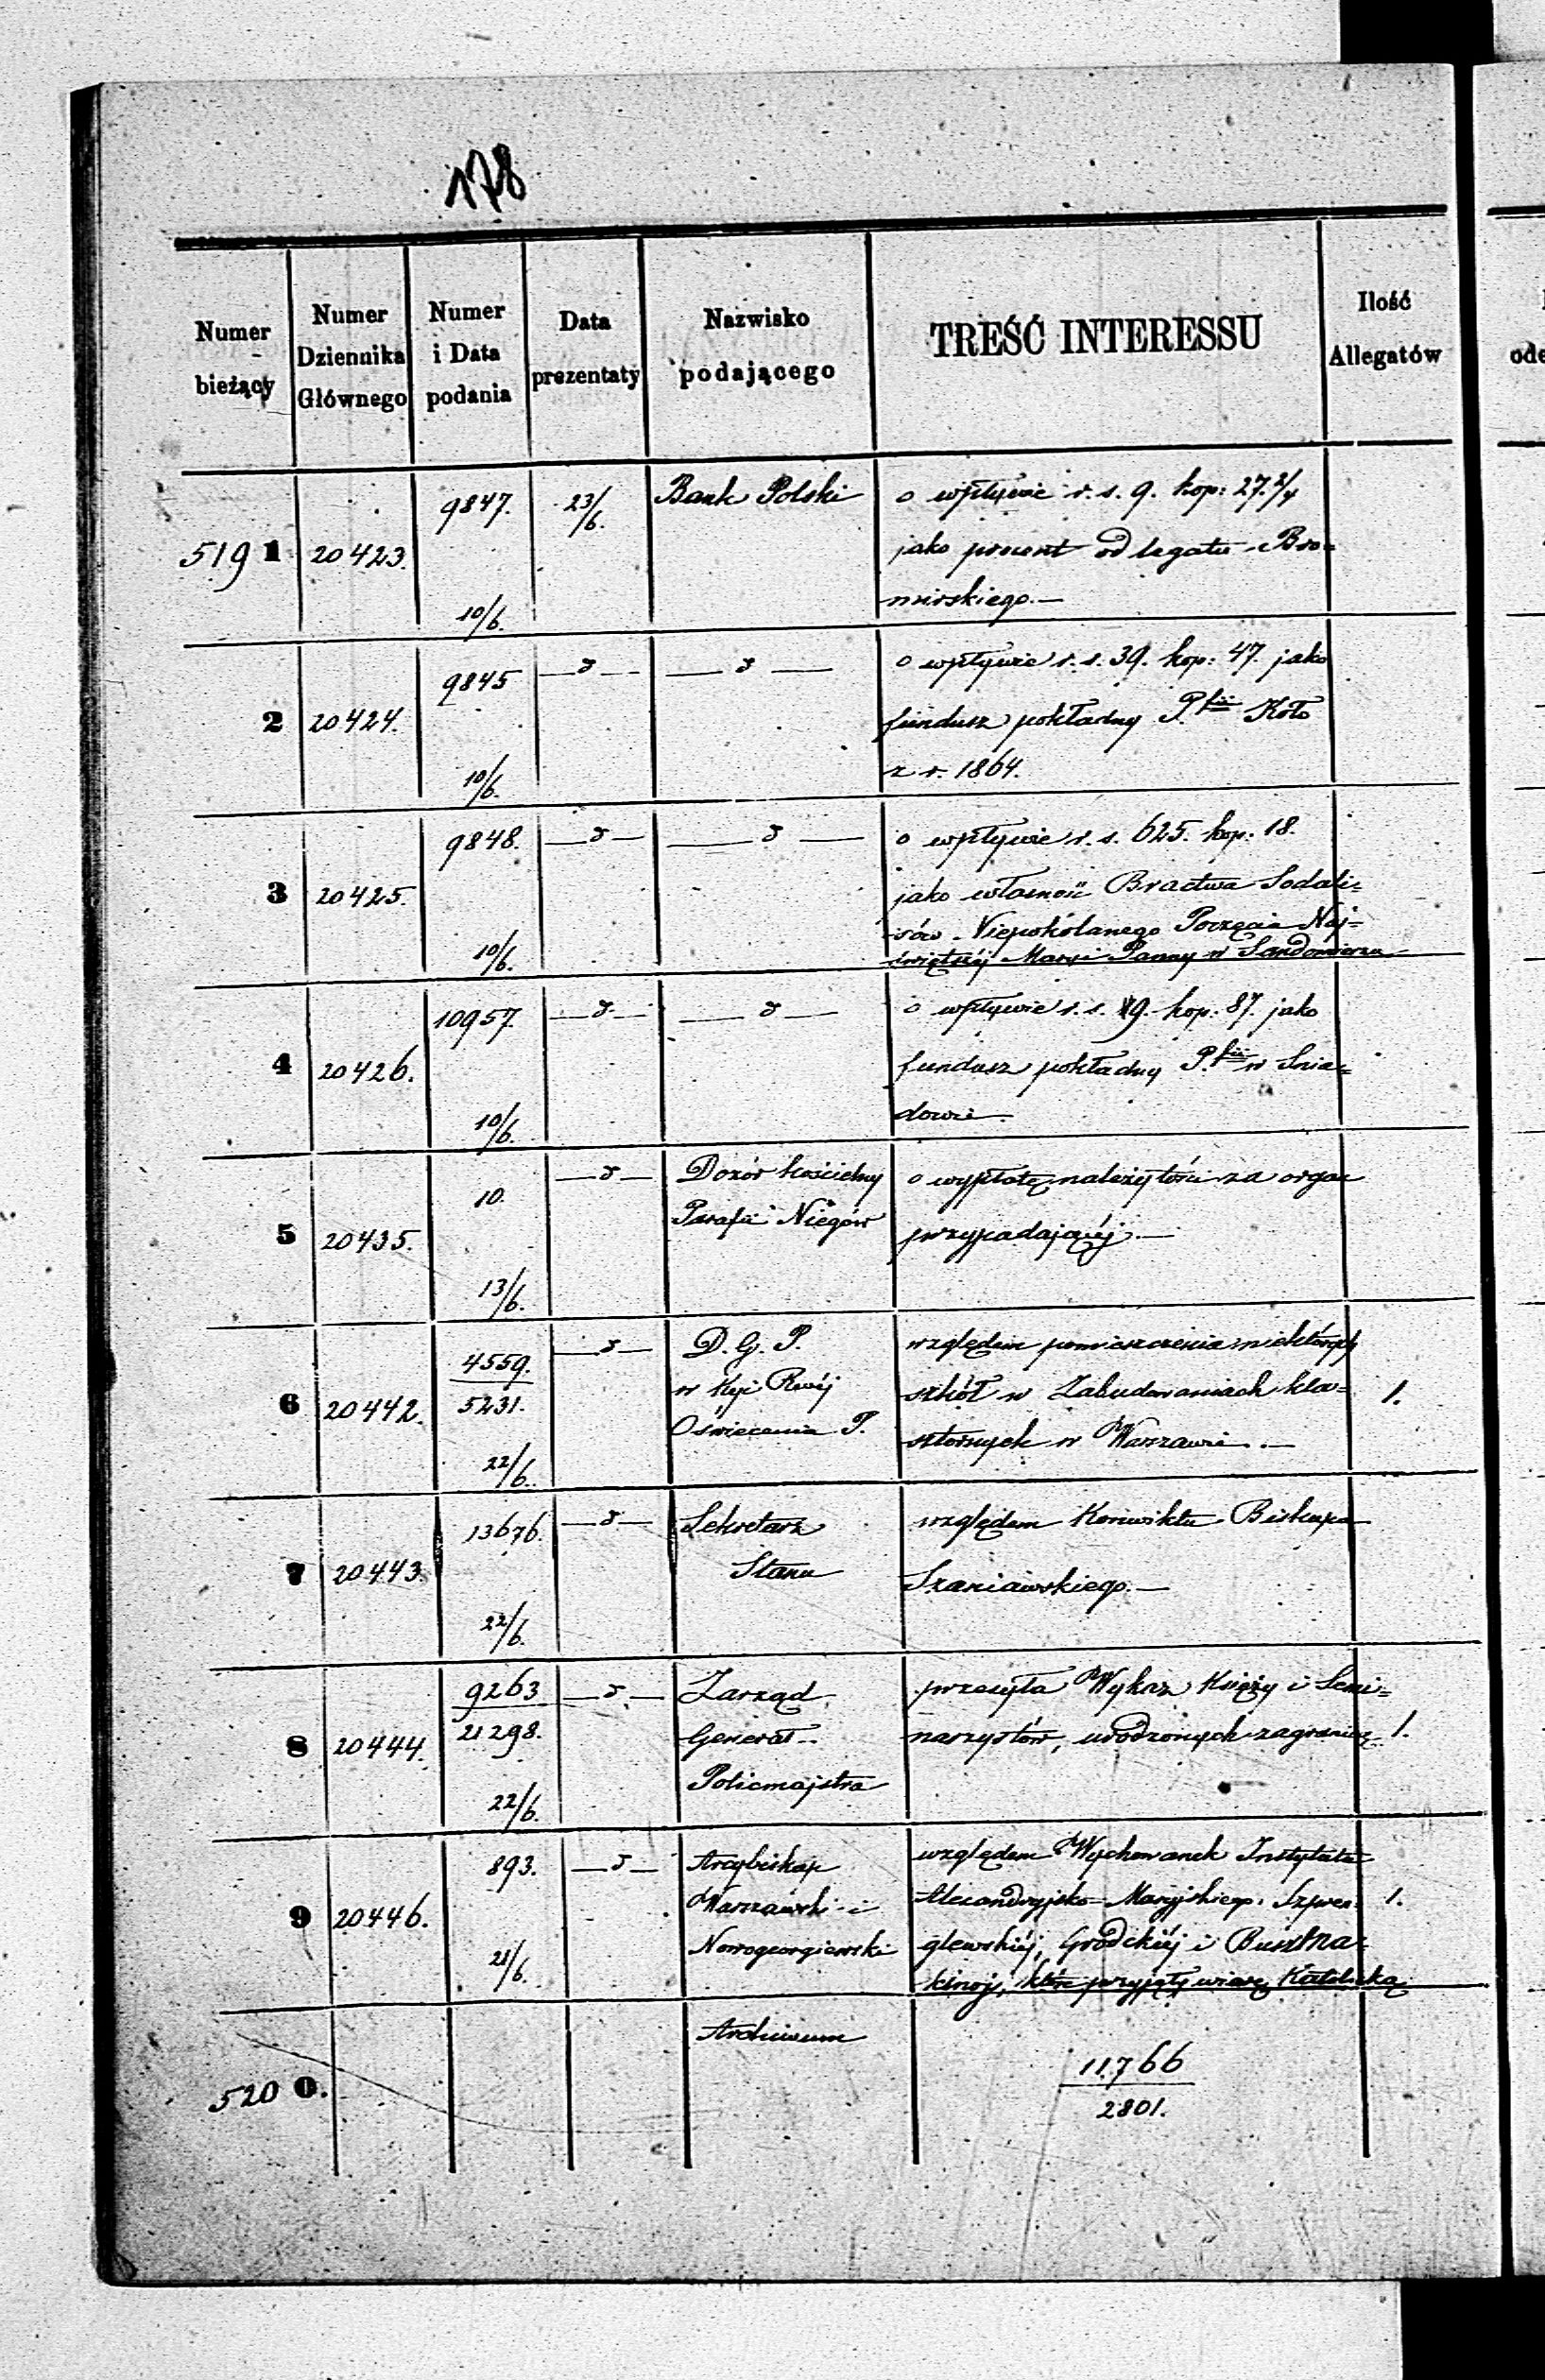 178
Numer bieżący
Numer Dziennika Głównego
Numer i Data podania
Data prezentaty
Nazwisko podającego
TREŚĆ INTERESSU
Ilość Allegatów
5191 20423. 9847. 10/6. 23/6. Bank Polski o wpływie r. s. 9. kop: 27. 2/4
jako procent od legatu Bro=
mirskiego.—
2 20424. 9845 10/6. —d— —d— o wpływie r. s. 39. kop: 47. jako
fundusz pokładny P.fii Koło
z r. 1864.
3 20425. 9848. 10/6. —d— —d— o wpływie r. s. 625. kop: 18.
jako własność Bractwa Sodali=
sów Niepokolanego Poczęcia Naj=
świętszéj Maryi Panny w Sandomierzu
4 20426. 10957. 10/6. —d— —d— o wpływie r. s. 19. kop: 87. jako
fundusz pokładny P.fii w Snia=
dowie.
5 20435. 10. 13/6. —d— Dozór kościelny o wypłatę należytości za organ
Parafii Niegów przypadającéj.—
6 20442. 4559. 5231. 22/6. —d— D. G. P. względem pomieszczenia niektórych
w Kyi Rwéj szkół w Zabudowaniach kla= 1.
Oświecenia P. sztornych w Warszawie.—
7 20443. 13676. 22/6. —d— Sekretarz względem Konwiktu Biskupa
Stanu Szaniawskiego.—
8 20444. 9263 21298. 22/6. —d— Zarząd przesyła Wykaz Księży i Semi=
Generał narzystów, urodzonych zagranicą. 1.
Policmajstra
9 20446. 893. 21/6. —d— Arcybiskup względem Wychowanek Instytutu
Warszawski i Alexandryjsko=Maryjskiego: 1.
Nowogeorgiewski Grodckiéj i
które przyjęły wiarę Katolicką
5200. Archiwum
11.766
2801.